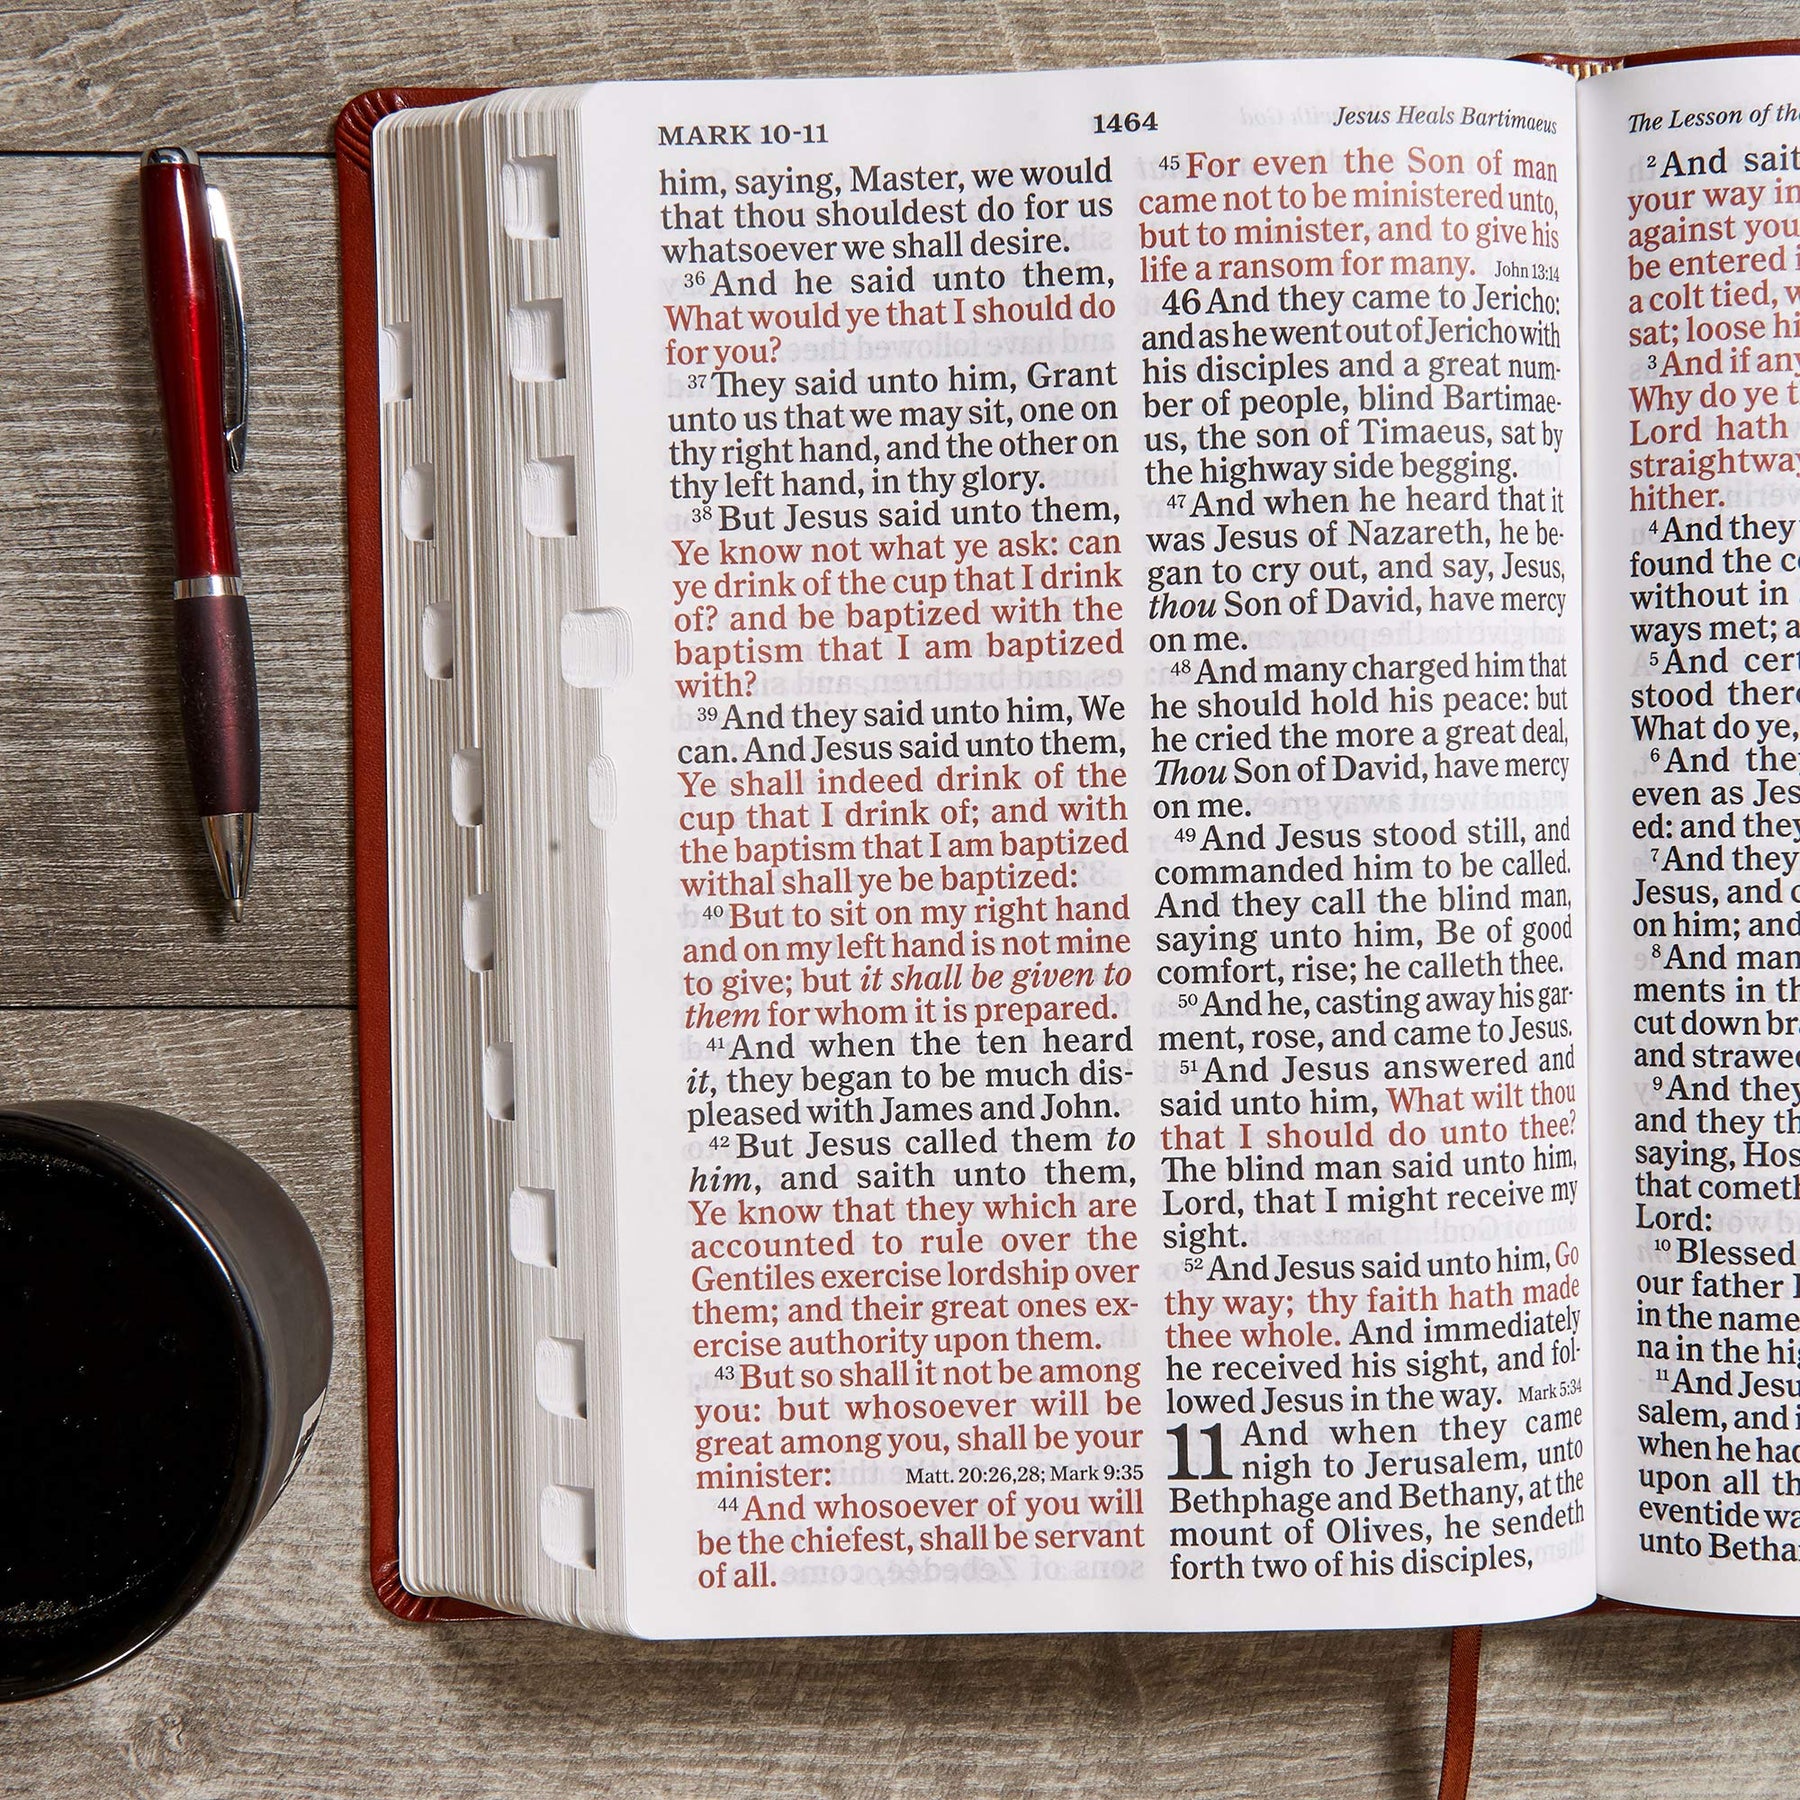 MARK 10-11
1464
Jesus Heals Bartimaeus
him, saying, Master, we would
that thou shouldest do for us
whatsoever we shall desire.
36 And he said unto them,
What would ye that I should do
for you?
37 They said unto him, Grant
unto us that we may sit, one on
thy right hand, and the other on
thy left hand, in thy glory.
38 But Jesus said unto them,
Ye know not what ye ask: can
ye drink of the cup that I drink
of? and be baptized with the
baptism that I am baptized
with?
39 And they said unto him, We
can. And Jesus said unto them,
Ye shall indeed drink of the
cup that I drink of; and with
the baptism that I am baptized
withal shall ye be baptized:
40 But to sit on my right hand
and on my left hand is not mine
to give; but it shall be given to
them for whom it is prepared.
41 And when the ten heard
it, they began to be much dis-
pleased with James and John.
42 But Jesus called them to
him, and saith unto them,
Ye know that they which are
accounted to rule over the
Gentiles exercise lordship over
them; and their great ones ex-
ercise authority upon them.
43 But so shall it not be among
you: but whosoever will be
great among you, shall be your
minister: Matt. 20:26,28; Mark 9:35
44 And whosoever of you will
be the chiefest, shall be servant
of all.
45 For even the Son of man
came not to be ministered unto,
but to minister, and to give his
life a ransom for many. John 13:14
46 And they came to Jericho:
and as he went out of Jericho with
his disciples and a great num-
ber of people, blind Bartimae-
us, the son of Timaeus, sat by
the highway side begging.
47 And when he heard that it
was Jesus of Nazareth, he be-
gan to cry out, and say, Jesus,
thou Son of David, have mercy
on me.
48 And many charged him that
he should hold his peace: but
he cried the more a great deal,
Thou Son of David, have mercy
on me.
49 And Jesus stood still, and
commanded him to be called.
And they call the blind man,
saying unto him, Be of good
comfort, rise; he calleth thee.
50 And he, casting away his gar-
ment, rose, and came to Jesus.
51 And Jesus answered and
said unto him, What wilt thou
that I should do unto thee?
The blind man said unto him,
Lord, that I might receive my
sight.
52 And Jesus said unto him, Go
thy way; thy faith hath made
thee whole. And immediately
he received his sight, and fol-
lowed Jesus in the way. Mark 5:34
11 And when they came
nigh to Jerusalem, unto
Bethphage and Bethany, at the
mount of Olives, he sendeth
forth two of his disciples,
The Lesson of
2 And
your way
against you
be entered
a colt tied,
sat; loose
3 And if any
Why do ye
Lord hath
straightway
hither.
4 And they
found the
without in
ways met;
5 And
stood
What do ye,
6 And
even as
ed: and they
7 And they
Jesus, and
on him; and
8 And
ments in
cut down
and
9 And they
and they
saying,
that
Lord:
10 Blessed
our father
in the name
na in the
11 And
salem, and
when he had
upon all
eventide
unto